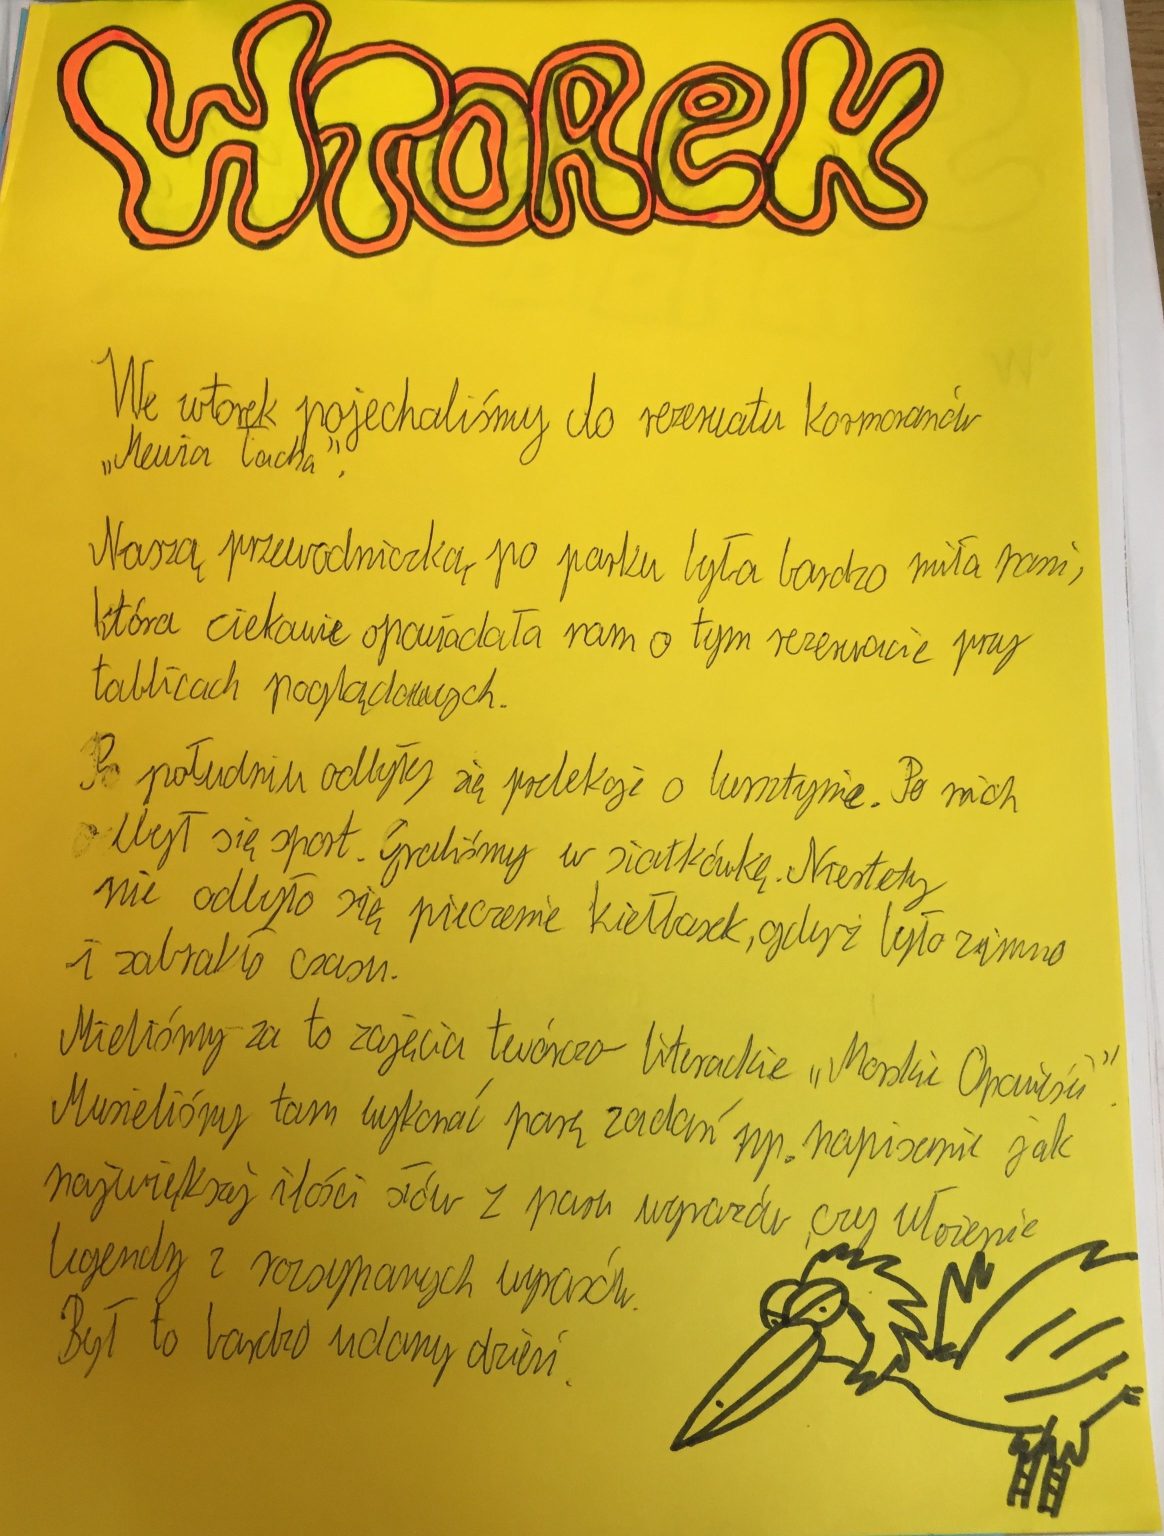 WTOREK
We wtorek pojechaliśmy do rezerwatu kormoranów
„Mewia Łacha".
Naszą przewodniczką po parku była bardzo miła pani,
która ciekawie opowiadała nam o tym rezerwacie przy
tablicach poglądowych.
Po południu odbyły się prelekcje o bursztynie. Po nich
odbył się sport. Graliśmy w siatkówkę. Niestety
nie odbyło się pieczenie kiełbasek, gdyż było zimno
i zabrakło czasu.
Mieliśmy za to zajęcia twórczo-literackie „Morskie Opowieści".
Musieliśmy tam wykonać parę zadań np. napisanie jak
największej ilości słów z paru wyrazów, czy ułożenie
legendy z rozsypanych wyrazów.
Był to bardzo udany dzień.